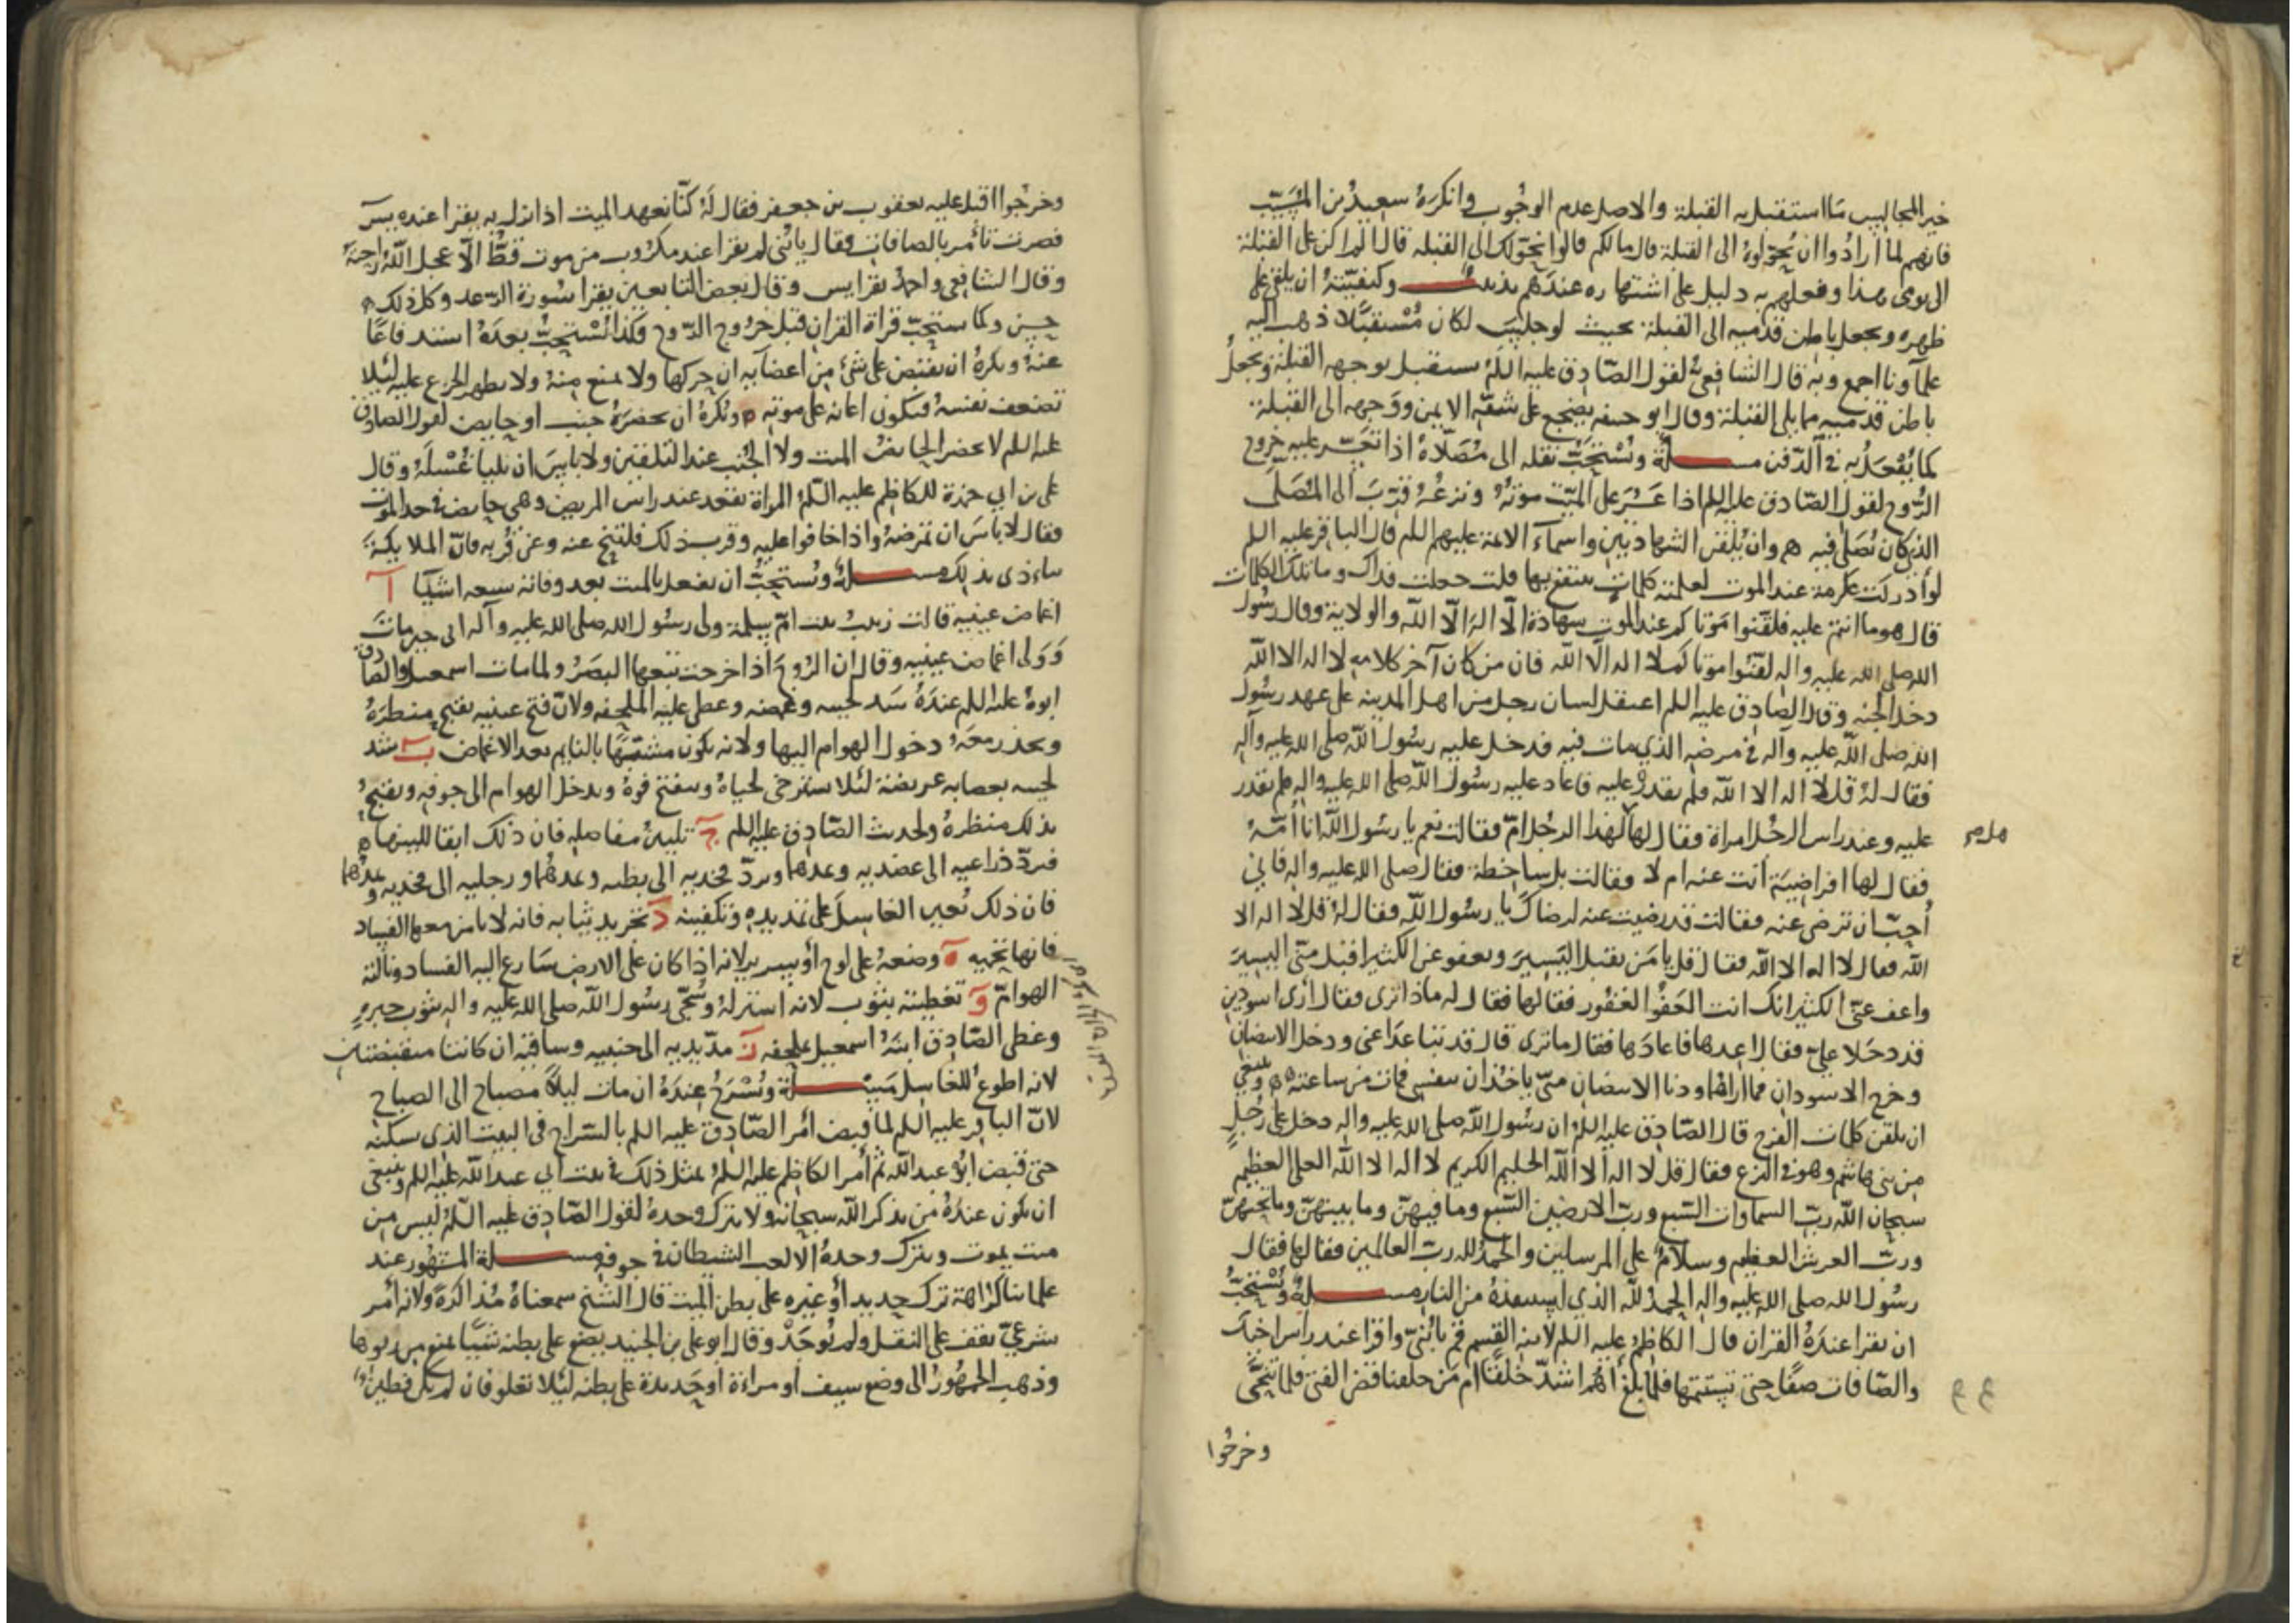 خير المجالس ما استقبل به القبلة والاصل عدم الوجوب وانكره سعيد بن المسيّب
فانهم لما ارادوا ان يحوّلوه الى القبلة قال مالكم قالوا نحوّلك الى القبلة قال الم اكن على القبلة
الى يومى هذا وفعلهم به دليل على اشتهاره عندهم تذنيب وكيفيّته ان يلقى على
ظهره ويجعل باطن قدميه الى القبلة بحيث لو جلس لكان مُسْتقبلا ذهب اليه
علماؤنا اجمع وبه قال الشافعي لقول الصّادق عليه السلم يستقبل بوجهه القبلة ويجعل
باطن قدميه مما يلي القبلة وقال ابو حنيفه يضجع على شقّه الايمن ووجهه الى القبلة
كما يُفْعَل به في الدّفن مسـلة ويُسْتحبّ نقله الى مُصلّاه اذا تعسّر عليه خروج
الرّوح لقول الصّادق عليه السلم اذا عَسُر على الميّت موته ونزعُه قرّبَ الى المُصَلّى
الذي كان يُصَلي فيه وان يُلقن الشهادتين واسماء الائمة عليهم السلم قال الباقر عليه السلم
لو ادركت عكرمة عند الموت لعلمته كلمات ينتفع بها قلت جعلت فداك وما تلك الكلمات
قال هو ما انتم عليه فلقّنوا موتاكم عند الموت شهادة الّا اله الّا الله والولاية وقال رسُول
الله صلى الله عليه واله لقّنوا موتاكم لا اله الّا الله فان من كان آخر كلامه لا اله الا الله
دخل الجنه وقال الصّادق عليه السلم اعتقل لسان رجل من اهل المدينة على عهد رسُول
الله صلى الله عليه وآله في مرضه الذي مات فيه فدخل عليه رسُول الله صلى الله عليه وآله
فقال له قل لا اله الا الله فلم يقدر عليه فاعاد عليه رسُول الله صلى الله عليه واله فلم يقدر
عليه وعند راس الرجل امراة فقال لها لهذا الرجل امّ فقالت نعم يا رسُول الله انا أُمّه
فقال لها افراضية أنت عنه ام لا فقالت بل ساخطة فقال صلى الله عليه واله فاني
أُحبّ ان ترضى عنه فقالت قد رضيت عنه لرضاك يا رسُول الله فقال له قل لا اله الا
الله فقال لا اله الا الله فقال قل يا مَن يقبل اليَسيرَ ويعفو عن الكثير اقبل منّى اليسيرَ
واعف عنّى الكثير انك انت العَفُوّ الغفور فقالها فقال له ماذا ترى فقال ارى اسودين
قد دخلا علىّ فقال اعدها فاعادَها فقال ما ترى قال قد تباعدا عنى ودخل الابيضان
وخرج الاسودان فما اراهما ودنا الابيضان منّى ياخذان بنفسي فمات من ساعته وينبغي
ان يلقن كلمات الفرج قال الصّادق عليه السلم ان رسُول الله صلى الله عليه واله دخل على رَجُلٍ
من بنى هاشم وهو في النزع فقال قل لا اله الا الله الحليم الكريم لا اله الا الله العلي العظيم
سبحان الله ربّ السماوات السّبع وربّ الارضين السّبع وما فيهنّ وما بينهنّ وما تحتهنّ
وربّ العرش العظيم وسلام على المرسلين والحمدُ لله ربّ العالمين فقالها فقال
رسُول الله صلى الله عليه واله الحمد لله الذي استنقذهُ من النار مسـلة ويُسْتحبُّ
ان يقرا عندهُ القران قال الكاظم عليه السلم لابنه القسم قم يا بُنىّ واقرا عند راس اخيك
والصّافات صفًا حتى تستتمها فلما بلغ أهُم اشدّ خلقًا ام مَن خلقنا قضى الفتى فلما سُجّى
وخرجُوا
وخرجُوا اقبل عليه يعقوب بن جعفر فقال لَهُ كنّا نعهد الميت اذا نزل به يقرا عنده يس
فصرت تأمر بالصافات فقال يا بُنى لم يقرا عند مكروب من موت قطُّ الّا عجل الله راحته
وقال الشافعي واحمدُ يقرا يس وقال بعض التابعين يقرا سُورة الرّعد وكل ذلك
حسن وكما يستحبّ قراة القران قبل خروج الرّوح فكذا يُسْتحبُّ بعدَهُ استدفاعًا
عنهُ ويكره ان يقبض على شىء من اعضآئه ان حركها ولا يمنع منهُ ولا يظهر الجزع عليه لئلا
تضعف نفسهُ فيكون اعانه على موته ويُكرهُ ان يحضرَهُ جنب او حايض لقول الصادق
عليه السلم لا يحضر الحايض الميت ولا الجُنُب عند التلقين ولا باسَ ان يليا غُسْلَهُ وقال
على بن ابي حمزة للكاظم عليه السّلم المراة تقعد عند راس المريض وهى حايض في حد الموت
فقال لا باسَ ان تمرضهُ واذا خافوا عليه وقرب ذلك فلتنحّ عنه وعن قُربه فانّ الملايكة
تتاذى بذلك مسـلة ويُستحبُّ ان يفعل بالميت بعد وفاته سبعه اشيآ آ
اغماض عينيه قالت زينبُ بنت امّ سلمة ولى رسُول الله صلى الله عليه وآله ابى حين مات
وَوَلى اغماض عينيه وقال ان الرُوحَ اذا خرجت تبعها البصَرُ ولما مات اسمعيل والصادق
ابوهُ عليه السلم عندَهُ شد لحييه وغمضه وعطى عليه الملحفه ولانّ فتح عينيه يقبح منظرَهُ
ويحذر معَهُ دخول الهوام اليها ولانه يكون مشتبهًا بالنايم بعد الاغماض ب شد
لحييه بعصابه عريضة لئلا يسترخى لحياهُ وينفتح فوهُ ويدخل الهوام الى جوفه ويقبح
بذلك منظرهُ ولحديث الصّادق عليه السلم ج تليينُ مفاصله فان ذلك ابقا للينها
فيردّ ذراعيه الى عضديه ويمدهما ويردّ فخديه الى بطنه ويمدهُما ورجليه الى فخديه ويمدُهما
فان ذلك يُعين الغاسِلَ على تمديده وتكفينه د تجريد ثيابه فانه لا يامن معها الفساد
فانها تحميه ه وضعهُ على لوح أو سرير لانه اذا كان على الارض سَارع اليه الفساد ونالته
الهوامّ و تغطيته بثوب لانه استر لهُ وسُجّى رسُول الله صلى الله عليه واله بثوب حبره
وغطى الصّادق ابنَهُ اسمعيل بملحفه ز مدّ يديه الى جنبيه وساقيه ان كانتا منقبضتان
لانه اطوعُ للغاسل مسـلة ويُسْرَجُ عندَهُ ان مات ليلًا مصباح الى الصباح
لانّ الباقر عليه السلم لما قبض أمر الصّادق عليه السلم بالسّراج في البيت الذي سكنه
حتى قبض أبُو عبد الله ثم أمر الكاظم عليه السلم بمثل ذلك في بيت أبي عبد الله عليه السلم وينبغي
ان يكون عندَهُ من يذكر الله سبحانه ولا يترك وحدهُ لقول الصّادق عليه السّلم ليس من
ميت يموت ويترك وحدهُ الا لعب الشيطان في جوفه مسـلة المشهُور عند
علمائنا كراهة ترك حديد أو غيره على بطن الميت قال الشيخ سمعناهُ مُذاكرةً ولانه أمر
شرعىّ يقف على النقل ولم يُوجَدْ وقال ابو على بن الجنيد يضع على بطنه شيئًا يمنع من ربوها
وذهب الجمهُورُ الى وضع سيف أو مراءة او حَديدة على بطنه لئلا تعلو فان لم يكن فطين